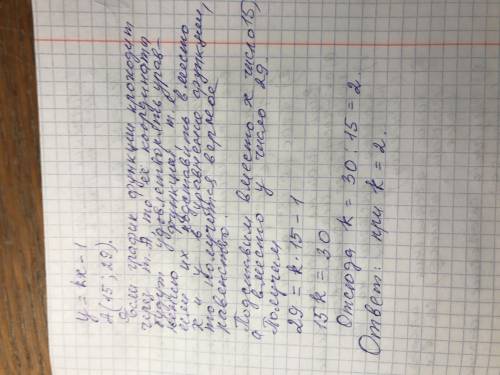 y = kx - 1
A(15; 29).
Если график функции проходит
через т. A, то её координаты
будут удовлетворять урав-
нению функции, т.е.
если их подставить вместо
x и y в уравнение функции,
то получится верное
равенство.
Подставим вместо x число 15,
а вместо y число 29.
Получим
29 = k · 15 - 1
15k = 30
Отсюда k = 30 : 15 = 2
Ответ: при k = 2.